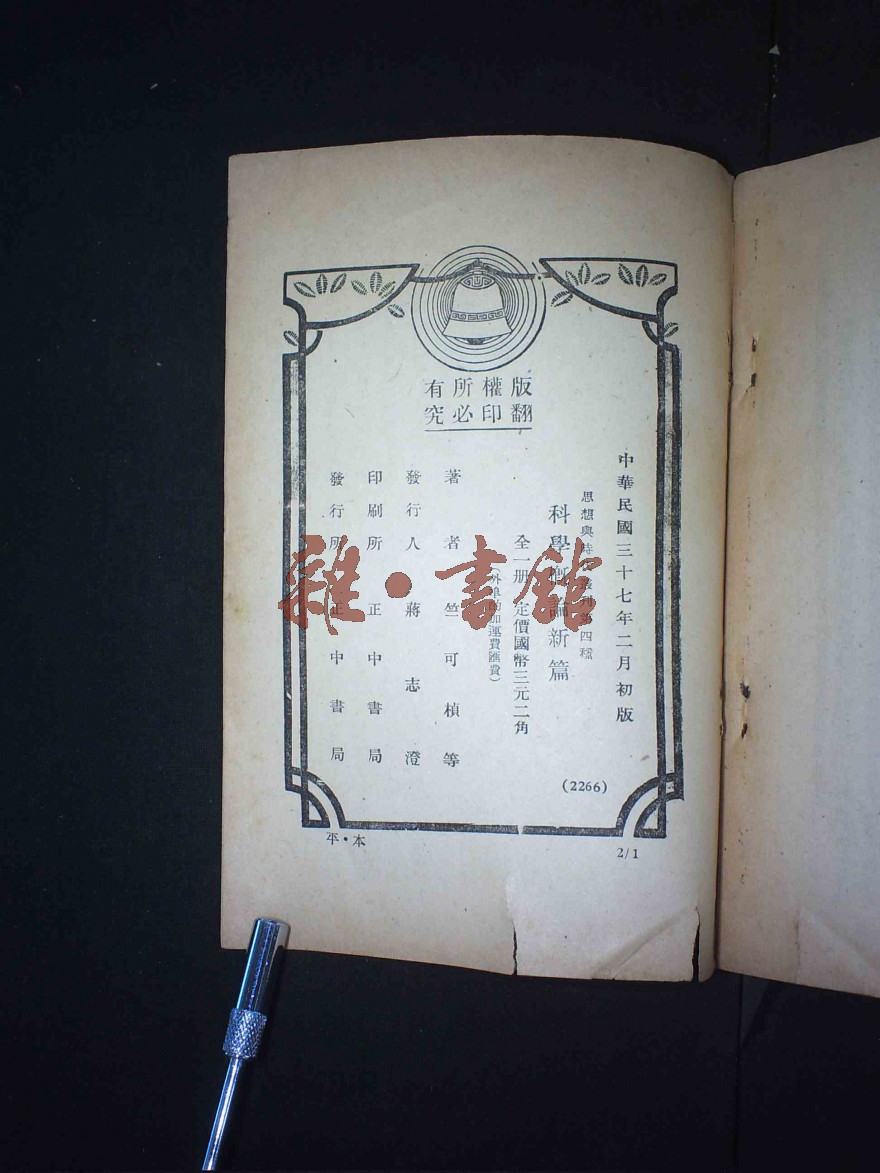 版權所有
翻印必究
中華民國三十七年二月初版
思想與時代叢刊第四種
科學概論新篇
全一册 定價國幣三元二角
(外埠酌加運費匯費)
著者 竺可楨等
發行人 蔣志澄
印刷所 正中書局
發行所 正中書局
(2266)
平·本
2/1
雜·書館